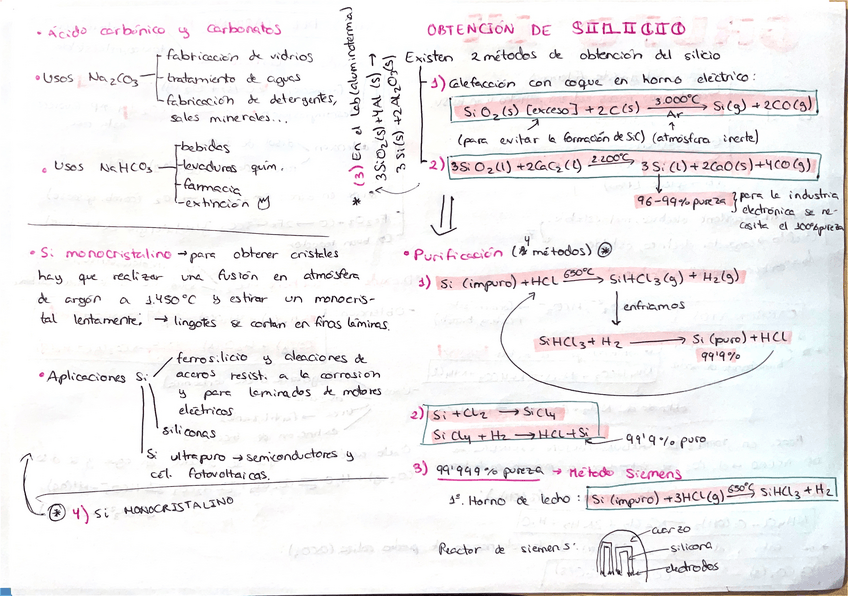 • Ácido carbónico y carbonatos
• Usos Na2CO3
- fabricación de vidrios
- tratamiento de aguas
- fabricación de detergentes,
sales minerales...
• Usos NaHCO3
- bebidas
- levaduras quím.
- farmacia
- extinción
* (3) En el lab (aluminotermia) →
3SiO2(s) + 4Al(s) →
3Si(s) + 2Al2O3(s)
• Si monocristalino → para obtener cristales
hay que realizar una fusión en atmósfera
de argón a 1.450°C y estirar un monocris-
tal lentamente; → lingotes se cortan en finas láminas.
• Aplicaciones Si
ferrosilicio y aleaciones de
aceros resist. a la corrosión
y para laminados de motores
eléctricos
siliconas
Si ultrapuro → semiconductores y
cél. fotovoltaicas.
* 4) Si MONOCRISTALINO
OBTENCIÓN DE SILICIO
Existen 2 métodos de obtención del silicio
1) Calefacción con coque en horno eléctrico:
SiO2(s) [exceso] + 2C(s) 3.000°C → Ar Si(g) + 2CO(g)
(para evitar la formación de SiC) (atmósfera inerte)
2) 3SiO2(l) + 2CaC2(l) 2200°C → 3Si(l) + 2CaO(s) + 4CO(g)
96-99% pureza } para la industria
electrónica se ne-
cesita el 100% pureza
• Purificación (4 métodos) *
1) Si (impuro) + HCl 650°C → SiHCl3(g) + H2(g)
enfriamos
SiHCl3 + H2 → Si (puro) + HCl
99'9%
2) Si + Cl2 → SiCl4
SiCl4 + H2 → HCl + Si
99'9% puro
3) 99'999% pureza → Método Siemens
1º. Horno de lecho: Si (impuro) + 3HCl(g) 650°C → SiHCl3 + H2
Reactor de siemens:
cuarzo
silicona
electrodos